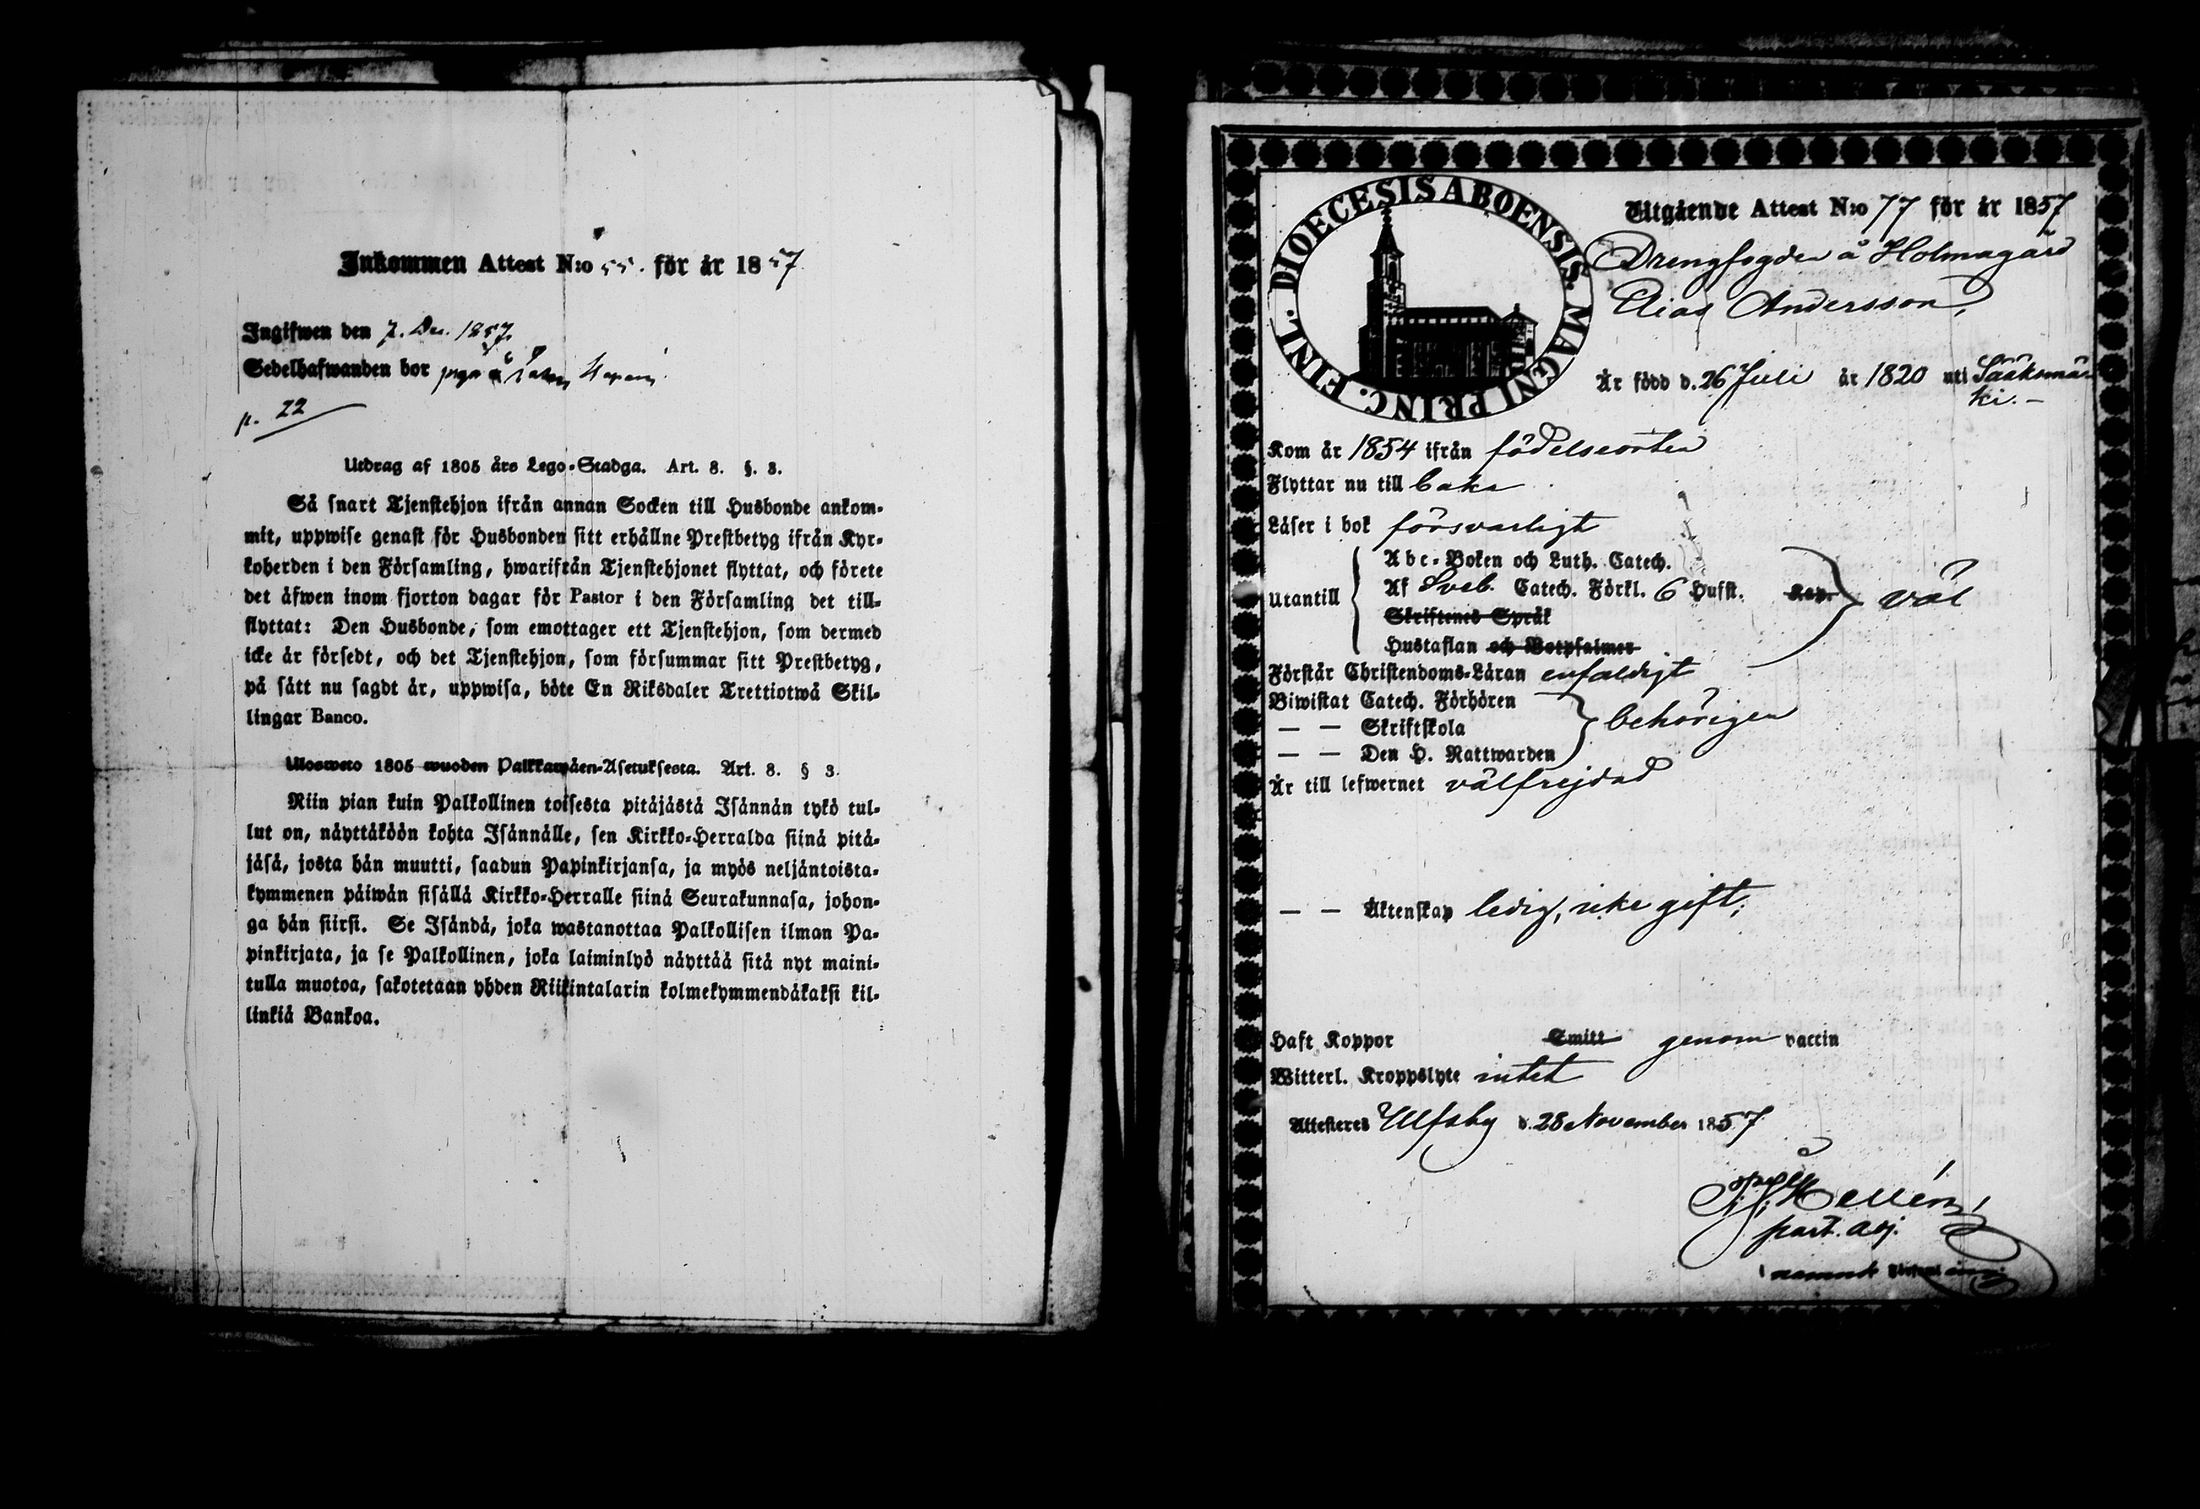 Inkommen Attest N:o 55. för år 1857.
Ingifwen den 7. Dec. 1857.
Sedelhafwanden bor
p. 22
Utdrag af 1805 års Lego-Stadga. Art. 8. §. 3.
Så snart Tjenstehjon ifrån annan Socken till Husbonde ankom-
mit, uppwise genast för Husbonden sitt erhållne Prestbetyg ifrån Kyr-
koherden i den Församling, hwarifrån Tjenstehjonet flyttat, och förete
det äfwen inom fjorton dagar för Pastor i den Församling det till-
flyttat: Den Husbonde, som emottager ett Tjenstehjon, som dermed
icke är försedt, och det Tjenstehjon, som försummar sitt Prestbetyg,
på sätt nu sagdt är, uppwisa, böte En Riksdaler Trettiotwå Skil-
lingar Banco.
Ulosweto 1805 wuoden Palkkawäen-Asetuksesta. Art. 8. § 3.
Niin pian kuin Palkollinen toisesta pitäjästä Isännän tykö tul-
lut on, näyttäköön kohta Isännälle, sen Kirkko-Herralda siinä pitä-
jäsä, josta hän muutti, saadun Papinkirjansa, ja myös neljäntoista-
kymmenen päiwän sisällä Kirkko-Herralle siinä Seurakunnasa, johon-
ga hän siirsi. Se Isändä, joka wastanottaa Palkollisen ilman Pa-
pinkirjata, ja se Palkollinen, joka laiminlyö näyttää sitä nyt maini-
tulla muotoa, sakotetaan yhden Riikintalarin kolmekymmendäkaksi kil-
linkiä Bankoa.
DIOECESIS ABOENSIS. MAGNI PRINC. FINL.
Utgående Attest N:o 77 för år 1857
Drengfogden å Holmagård
Elias Andersson,
Är född d. 26 Juli år 1820 uti Sääksmä-
ki.-
Kom år 1854 ifrån födelseorten
Flyttar nu till baka
Läser i bok försvarligt
Abc-Boken och Luth. Catech.
Utantill Af Sveb. Catech. Förkl. 6 Hufst. Kap. väl
Skriftenes Språk
Hustaflan och Botpsalmer
Förstår Christendoms-Läran enfaldigt
Biwistat Catech. Förhören
— — Skriftskola behörigen
— — Den H. Nattwarden
Är till lefwernet välfrejdad
— — Äktenskap ledig, icke gift;
Haft Koppor Smitt genom vaccin
Witterl. Kroppslyte intet
Attesteras Ulfsby d. 28 November 1857.
past. adj.